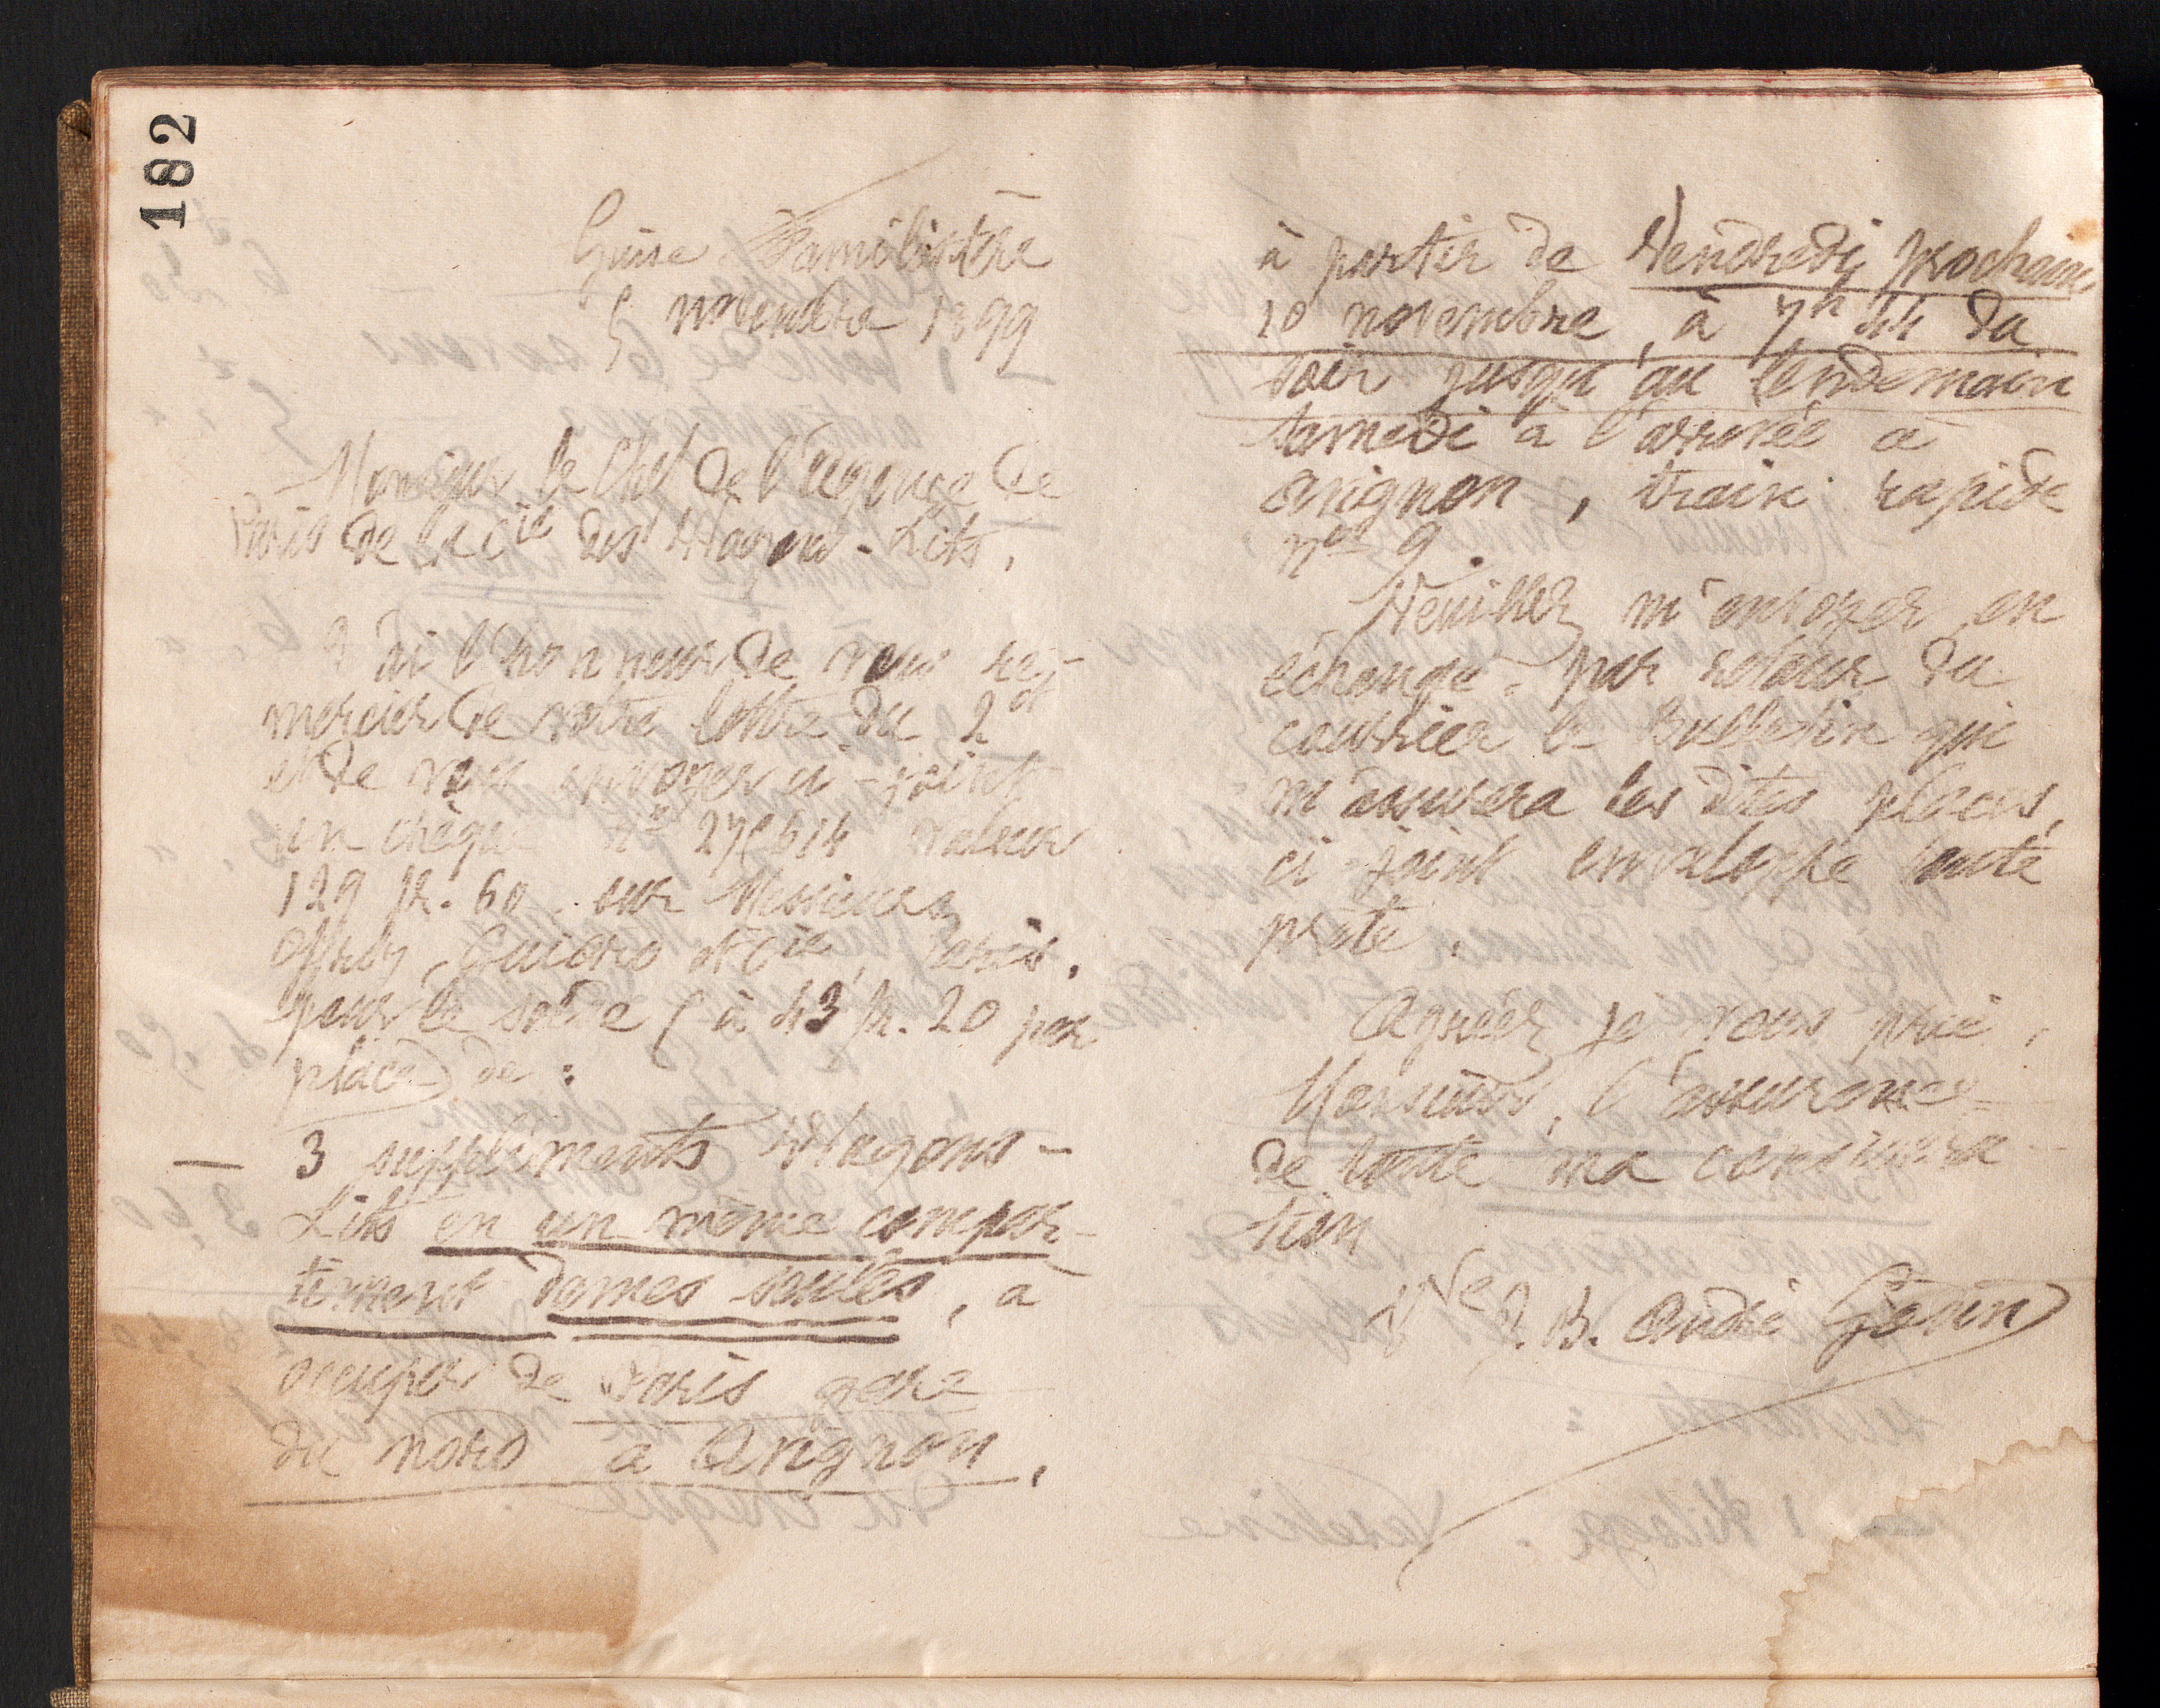 182
Guise Familistère
5 novembre 1899
Monsieur le Chef de l'agence de
Paris de la Cie des Wagons-Lits,
J'ai l'honneur de vous re-
mercier de votre lettre du 2 ct
et de vous envoyer ci-joint
un chèque n° 614 valeur
129 fr. 60 sur Messieurs
Offroy, Guiard et Cie, Paris,
pour le solde (à 43 fr. 20 par
place) de :
— 3 suppléments Wagons-
Lits en un même compar-
timent dames seules, à
occuper de Paris gare
du nord à Avignon,
à partir de Vendredi prochain
10 novembre, à 7h 44 du
soir jusqu'au lendemain
samedi à l'arrivée à
Avignon, train rapide
n° 9.
Veuillez m'envoyer en
échange par retour du
courrier le Bulletin qui
m'assurera les dites places,
ci-joint enveloppe toute
prête.
Agréez je vous prie,
Monsieur, l'assurance
de toute ma considéra
tion
Vve J. B. André Godin